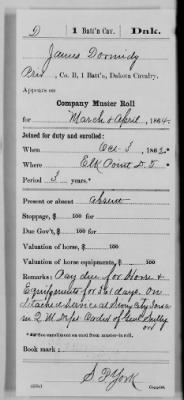 D | 1 Batt'n Cav. | Dak.
James Dormidy
Priv, Co. B, 1 Batt'n, Dakota Cavalry.
Appears on
Company Muster Roll
for March & April, 1864.
Joined for duty and enrolled:
When Dec 3, 1862.*
Where Elk Point D. T.
Period 3 years.*
Present or absent Absent
Stoppage, $ 100 for
Due Gov't, $ 100 for
Valuation of horse, $ 100
Valuation of horse equipments, $ 100
Remarks: Pay due for Horse &
Equipments for 3 days. On
Detached Service at Sioux City Iowa
in Q M Dept Order of Genl Sully
*See enrollment on card from muster-in roll.
Book mark:
S P York
Copyist.